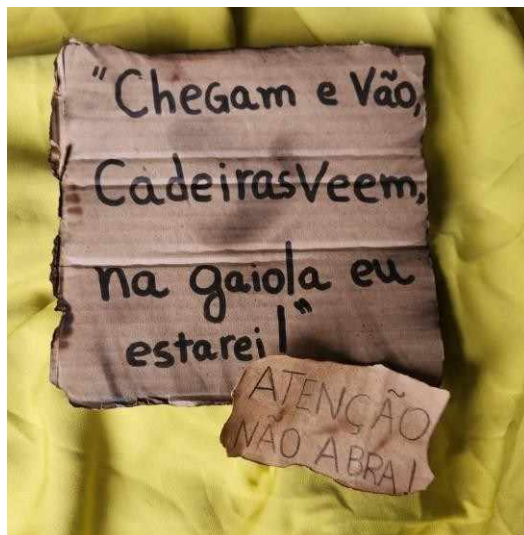 "Chegam e Vão,
Cadeiras Veem,
na gaiola eu
estarei!"
ATENÇÃO
NÃO ABRA!